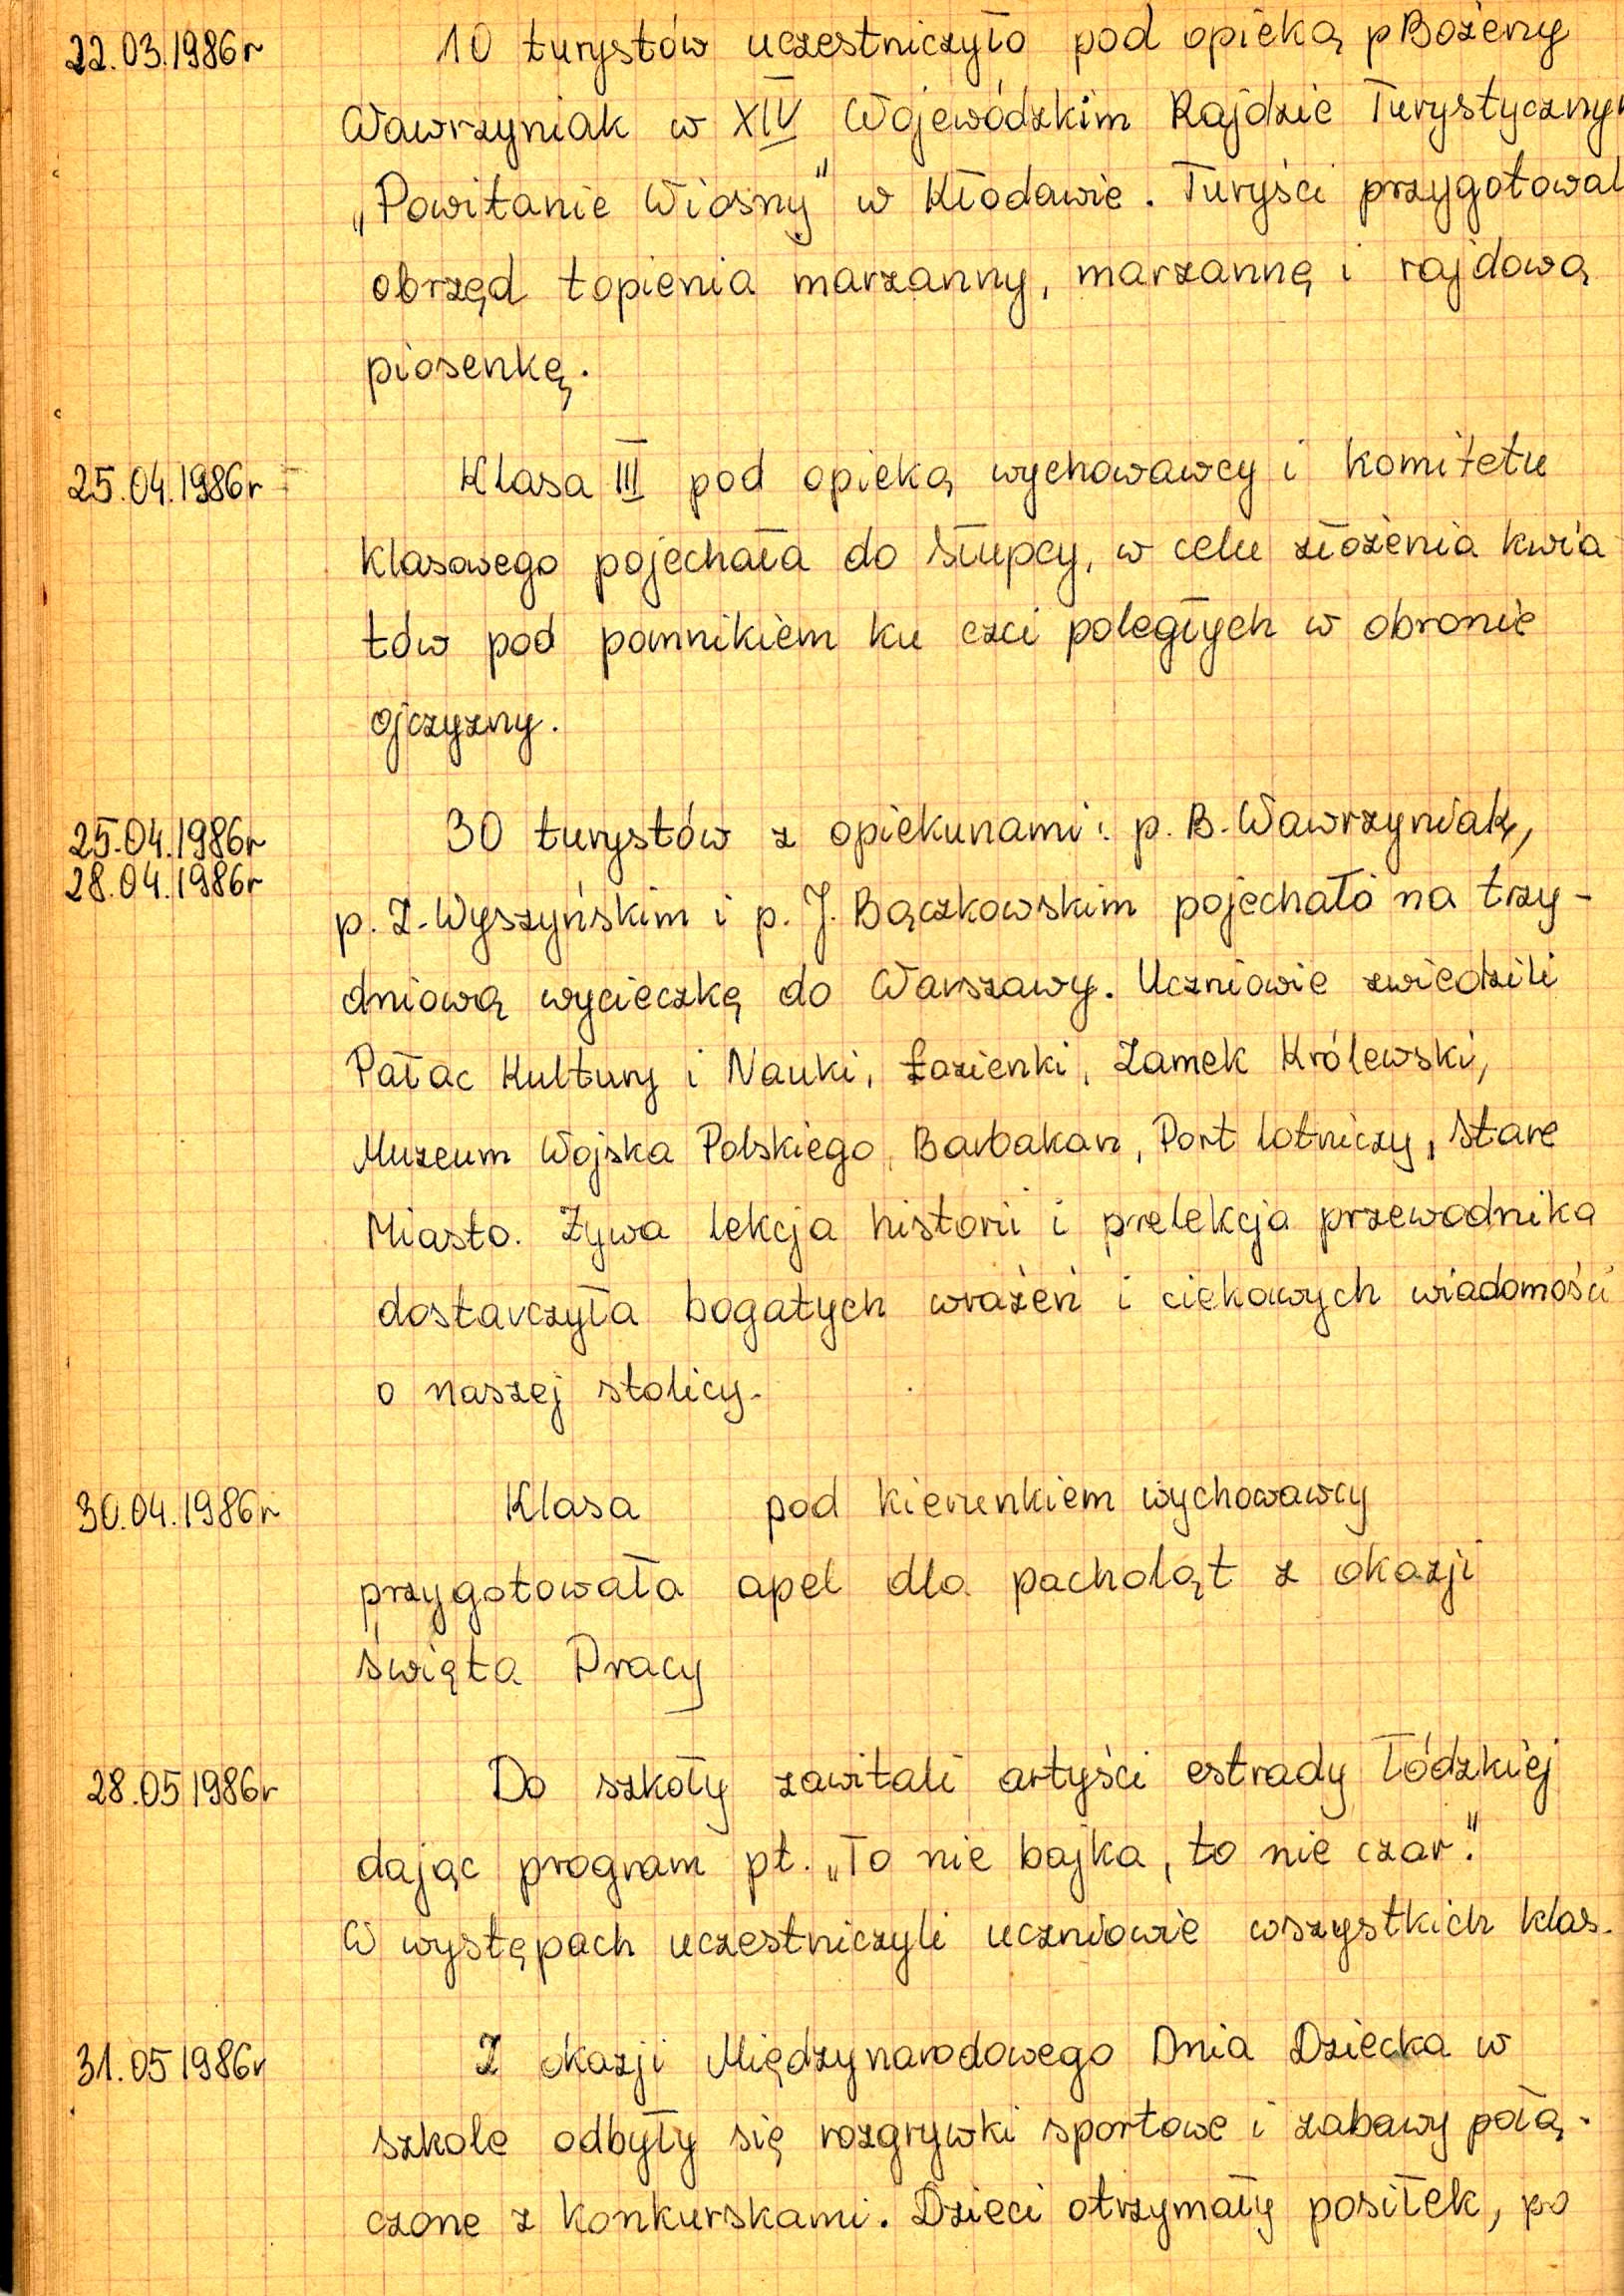 22.03.1986r 10 turystów uczestniczyło pod opieką p Bożeny
Wawrzyniak w XIV Wojewódzkim Rajdzie Turystycznym
„Powitanie Wiosny" w Kłodawie. Turyści przygotowal
obrzęd topienia marzanny, marzannę i rajdową
piosenkę.
25.04.1986r Klasa III pod opieką wychowawcy i komitetu
klasowego pojechała do Słupcy, w celu złożenia kwia
tów pod pomnikiem ku czci poległych w obronie
ojczyzny.
25.04.1986r 30 turystów z opiekunami: p. B. Wawrzyniak,
28.04.1986r
p. Z. Wyszyńskim i p. J. Bączkowskim pojechało na trzy-
dniową wycieczkę do Warszawy. Uczniowie zwiedzili
Pałac Kultury i Nauki, Łazienki, Zamek Królewski,
Muzeum Wojska Polskiego, Barbakan, Port lotniczy, Stare
Miasto. Żywa lekcja historii i prelekcja przewodnika
dostarczyła bogatych wrażeń i ciekawych wiadomości
o naszej stolicy.
30.04.1986r Klasa pod kierunkiem wychowawcy
przygotowała apel dla pacholąt z okazji
święta Pracy
28.05 1986r Do szkoły zawitali artyści estrady łódzkiej
dając program pt. „To nie bajka, to nie czar."
W występach uczestniczyli uczniowie wszystkich klas.
31.05 1986r Z okazji Międzynarodowego Dnia Dziecka w
szkole odbyły się rozgrywki sportowe i zabawy połą-
czone z konkurskami. Dzieci otrzymały posiłek, po